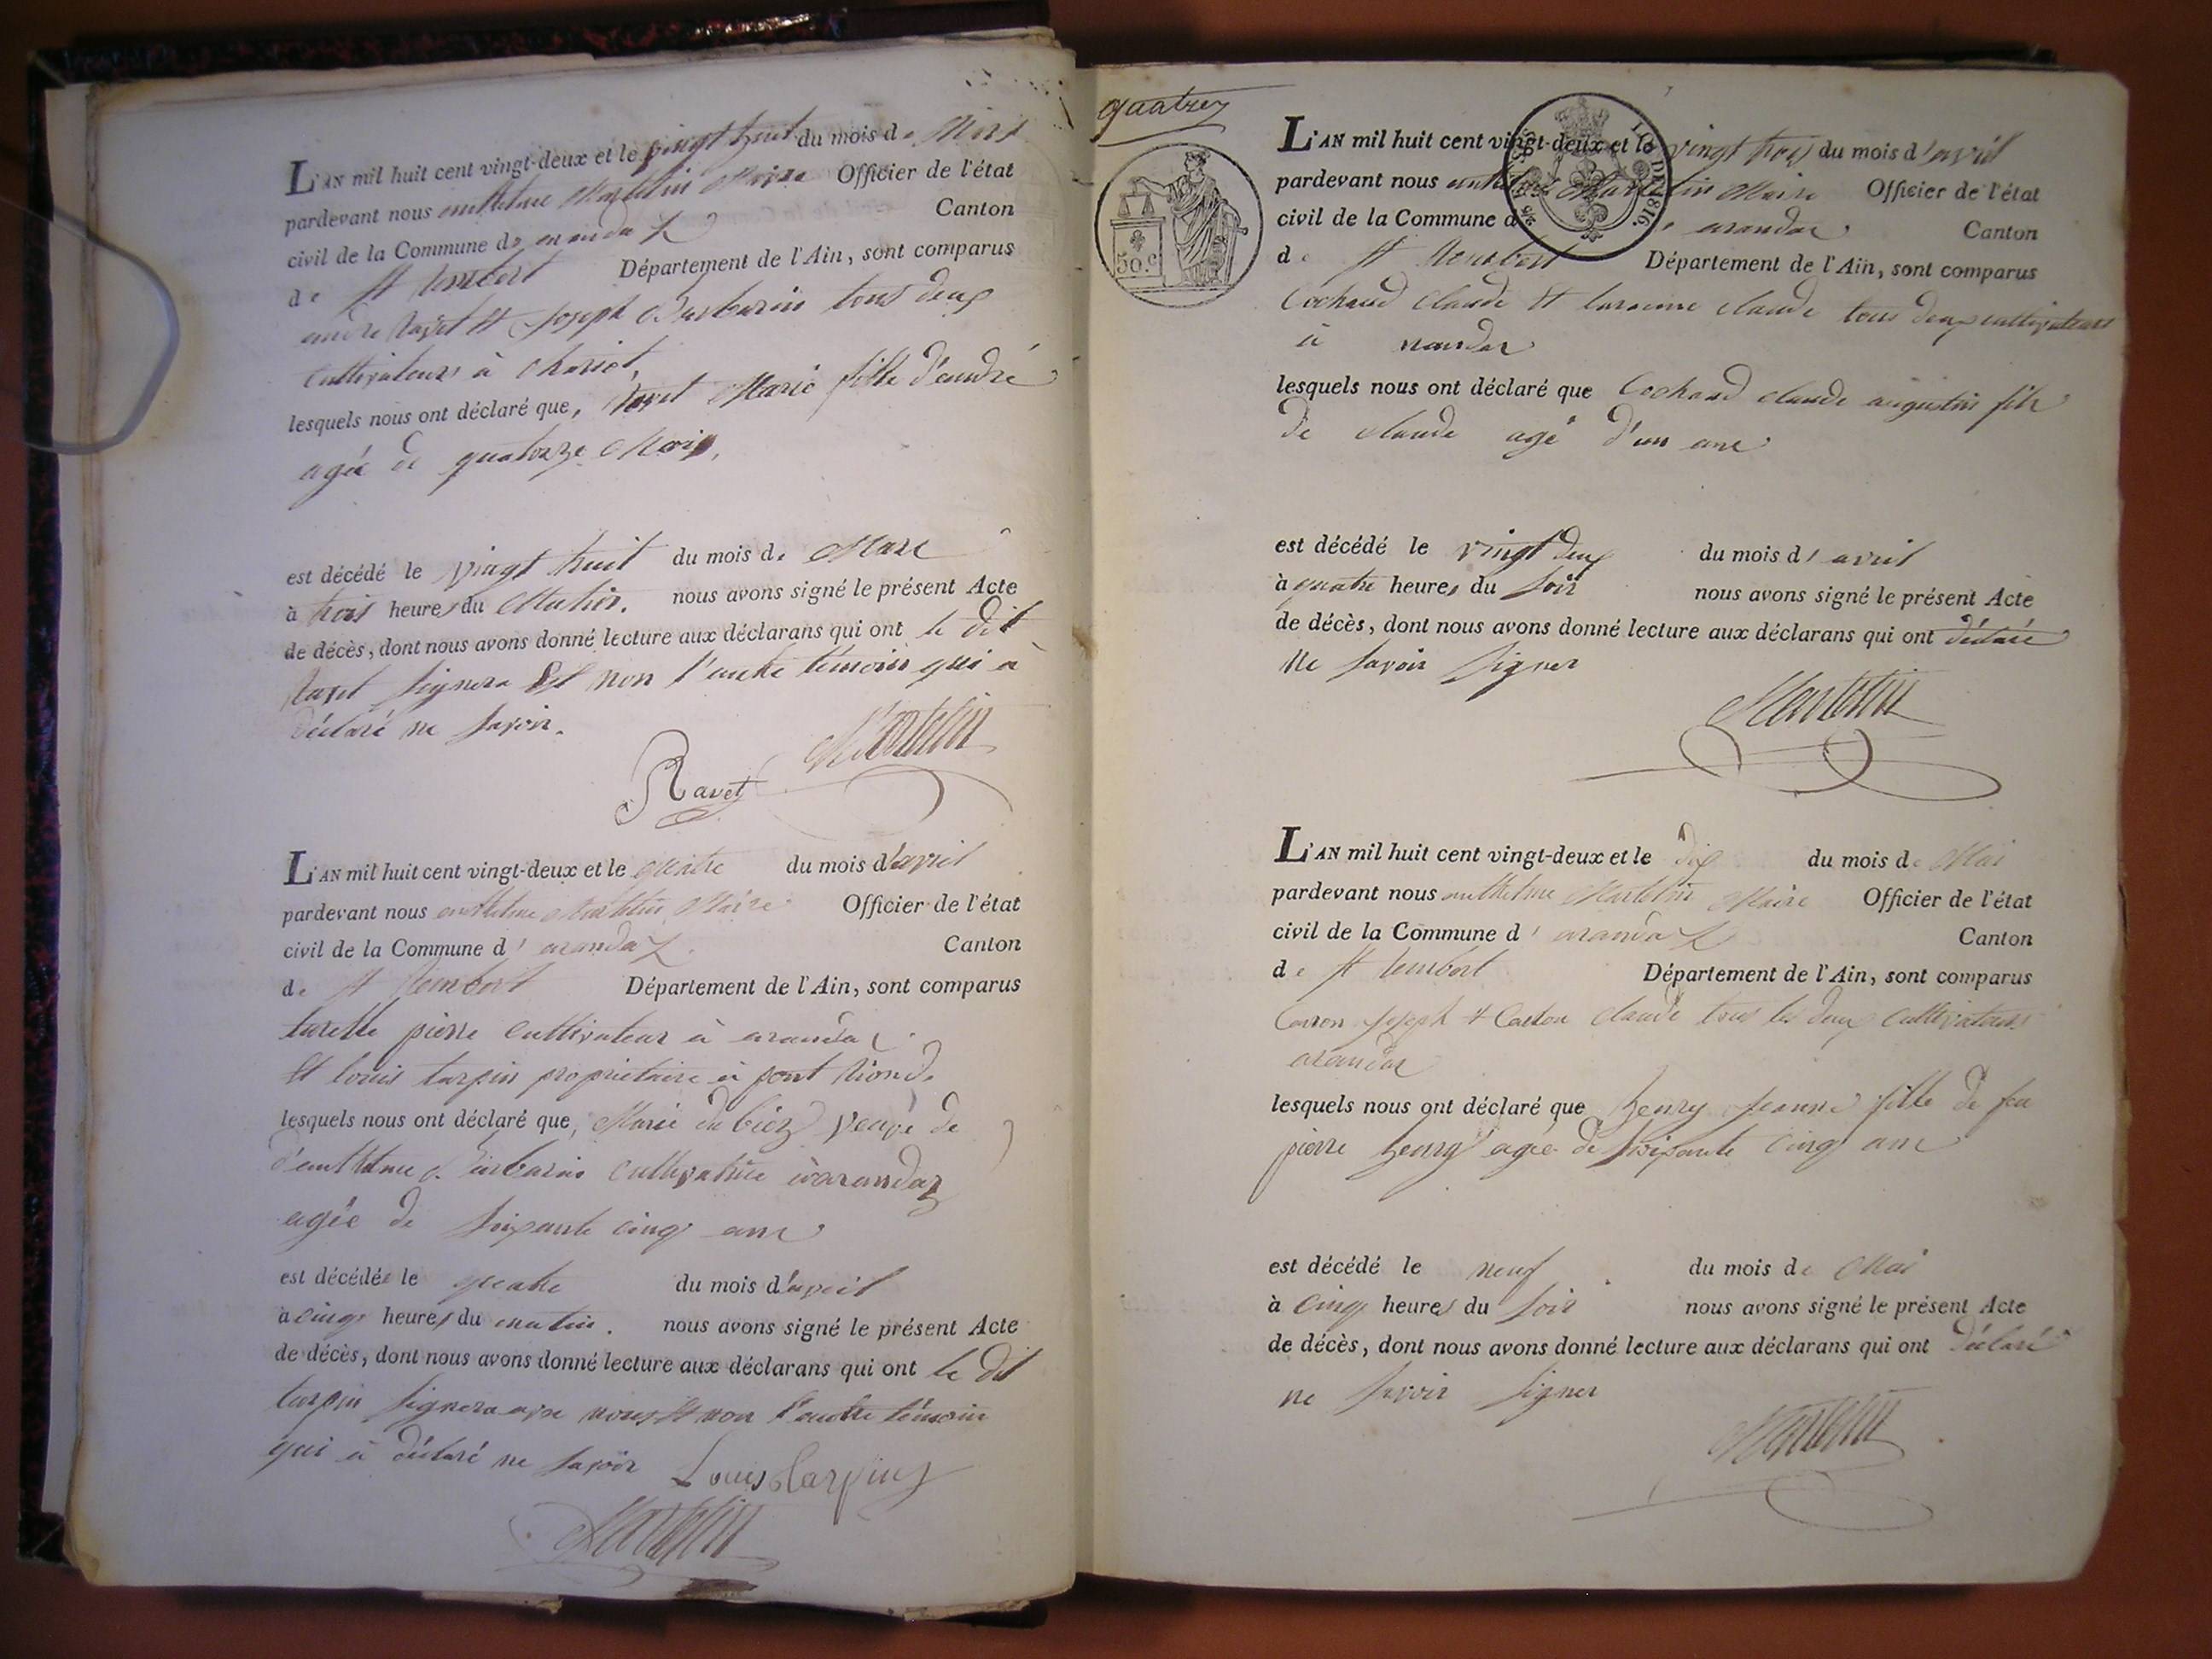 L'AN mil huit cent vingt-deux et le vingt huit du mois de Mars
pardevant nous anthelme Martelin Maire Officier de l'état
civil de la Commune d' arandaz Canton
de St Rembert Département de l'Ain, sont comparus
andré Ravet et Joseph Barbarin tous deux
cultivateurs à
lesquels nous ont déclaré que, Ravet Marie fille d'andré
agée de quatorze Mois,
est décédé le vingt huit du mois de Mars
à trois heures du Matin. nous avons signé le présent Acte
de décès, dont nous avons donné lecture aux déclarans qui ont le dit
Ravet signera Et non l'autre témoin qui à
déclaré ne savoir.
Martelin
Ravet
L'AN mil huit cent vingt-deux et le quatre du mois d'avril
pardevant nous anthelme Martelin Maire Officier de l'état
civil de la Commune d' arandaz Canton
de St Rembert Département de l'Ain, sont comparus
pierre cultivateur à arandaz
Et louis tarpin proprietaire à pont
lesquels nous ont déclaré que, Marie dubiez veuve de
d'anthelme Barbarin cultivatrice à arandaz
agée de soixante cinq ans
est décédée le quatre du mois d'avril
à cinq heures du matin. nous avons signé le présent Acte
de décès, dont nous avons donné lecture aux déclarans qui ont le dit
tarpin signera avec nous Et non l'autre témoin
qui à déclaré ne savoir Louis Tarpin
Martelin
quatre
50.c
LOI DE 1816.
L'AN mil huit cent vingt-deux et le vingt trois du mois d'avril
pardevant nous anthelme Martelin Maire Officier de l'état
civil de la Commune d' arandaz Canton
de St Rembert Département de l'Ain, sont comparus
Cochand Claude Et claude tous deux cultivateurs
à
lesquels nous ont déclaré que Cochand claude augustin fils
de claude agé d'un ans
est décédé le vingt deux du mois d' avril
à quatre heures du soir nous avons signé le présent Acte
de décès, dont nous avons donné lecture aux déclarans qui ont déclaré
Ne savoir signer
Martelin
L'AN mil huit cent vingt-deux et le dix du mois de Mai
pardevant nous anthelme Martelin Maire Officier de l'état
civil de la Commune d' arandaz Canton
de St Rembert Département de l'Ain, sont comparus
Joseph et claude tous les deux cultivateurs
arandaz
lesquels nous ont déclaré que henry Jeanne fille de feu
pierre henry agée de soixante cinq ans
est décédé le neuf du mois de Mai
à cinq heures du soir nous avons signé le présent Acte
de décès, dont nous avons donné lecture aux déclarans qui ont déclaré
ne savoir signer
Martelin